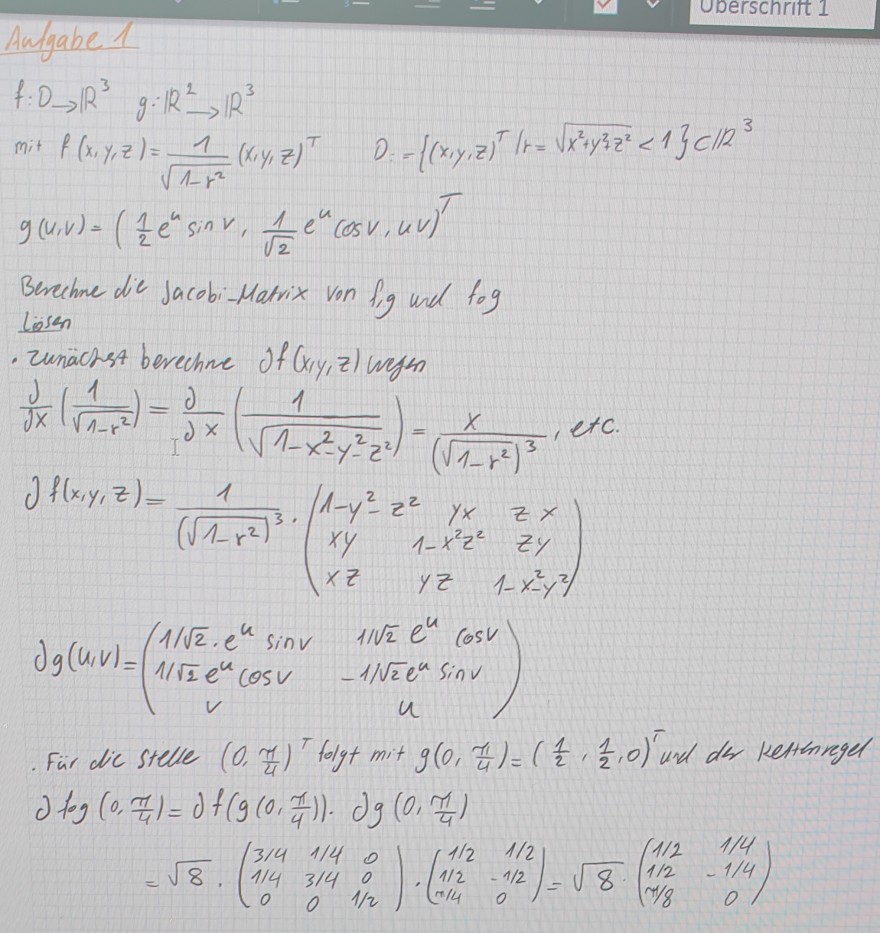 Überschrift 1
Aufgabe 1
f: D → ℝ³ g: ℝ² → ℝ³
mit f(x,y,z) = 1/√(1-r²) (x,y,z)ᵀ D := {(x,y,z)ᵀ | r = √(x²+y²+z²) < 1} ⊂ ℝ³
g(u,v) = (1/2 eᵘ sin v, 1/√2 eᵘ cos v, uv)ᵀ
Berechne die Jacobi-Matrix von f,g und fog
Lösen
. zunächst berechne ∂f(x,y,z) wegen
∂/∂x (1/√(1-r²)) = ∂/∂x (1/√(1-x²-y²-z²)) = x/(√(1-r²))³, etc.
∂f(x,y,z) = 1/(√(1-r²))³ · (1-y²-z² yx zx
xy 1-x²z² zy
xz yz 1-x²-y²)
∂g(u,v) = (1/√2 · eᵘ sin v 1/√2 eᵘ cos v
1/√2 eᵘ cos v -1/√2 eᵘ sin v
v u)
. Für die Stelle (0, π/4)ᵀ folgt mit g(0, π/4) = (1/2, 1/2, 0)ᵀ und der Kettenregel
∂fog(0, π/4) = ∂f(g(0, π/4)) · ∂g(0, π/4)
= √8 · (3/4 1/4 0
1/4 3/4 0
0 0 1/2) · (1/2 1/2
1/2 -1/2
π/4 0) = √8 · (1/2 1/4
1/2 -1/4
π/8 0)